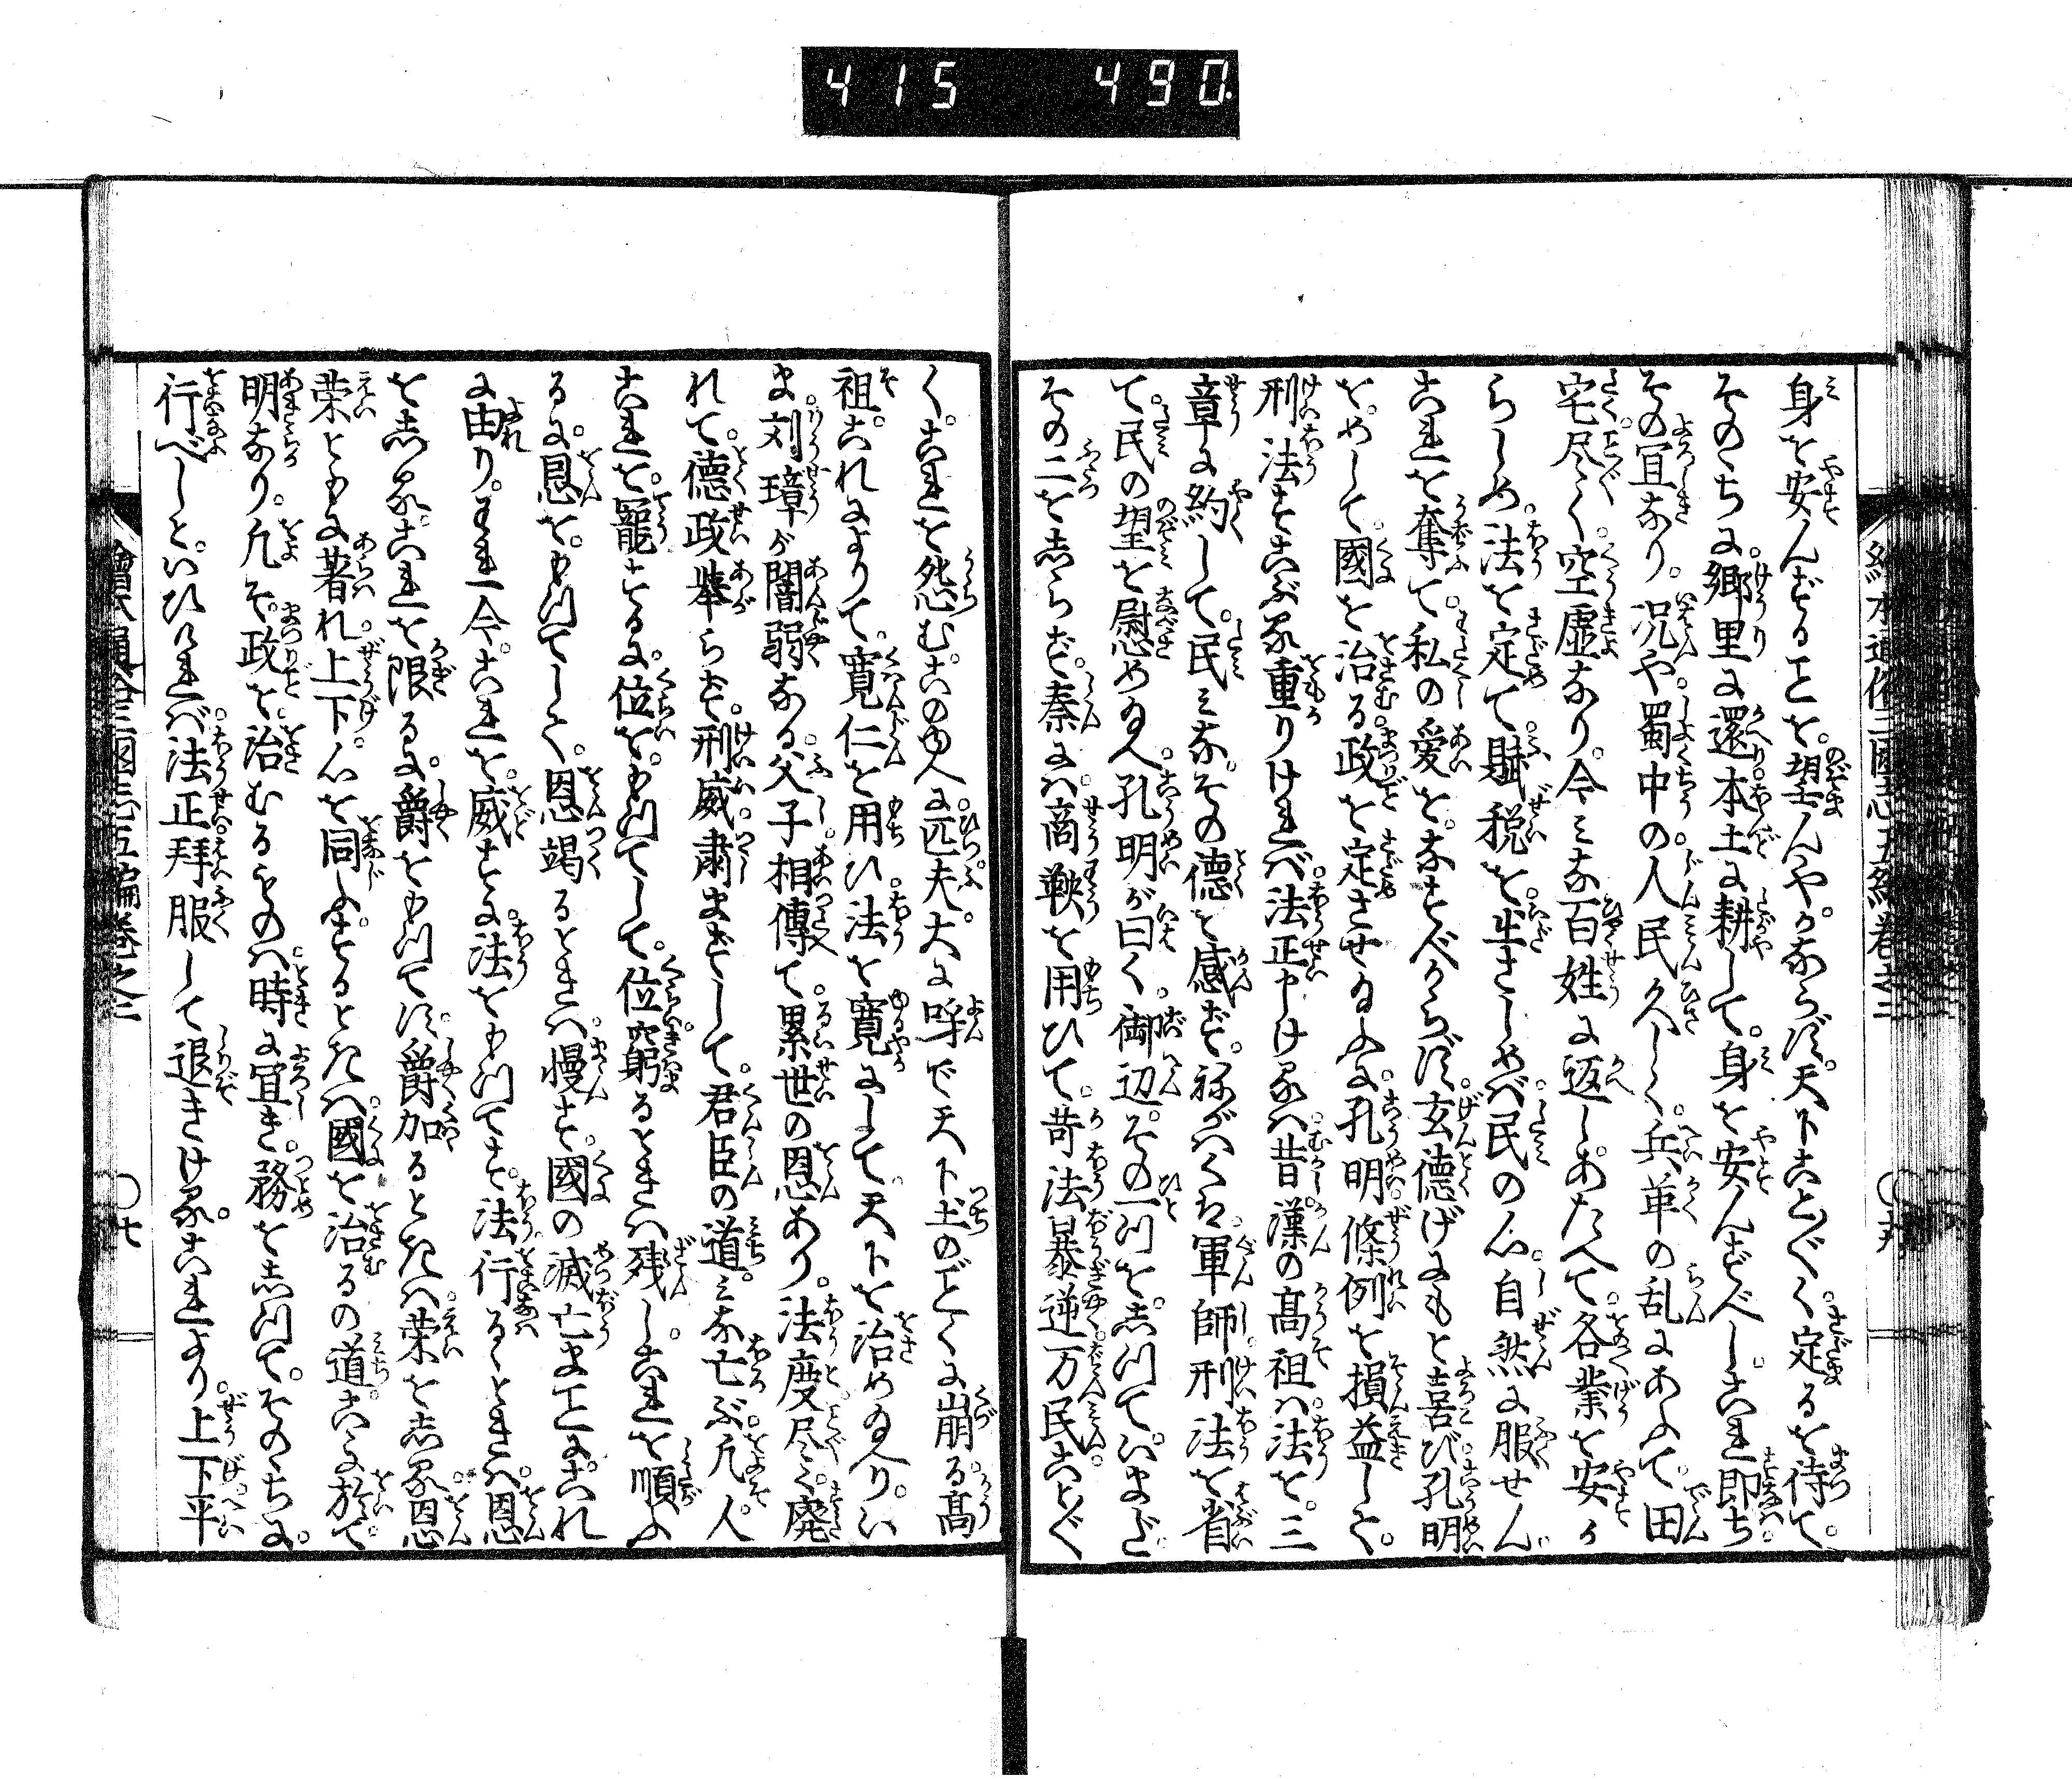 415 490
身を安んずるヿを望んや。かならず天下ことごとく定るを待て。
そのゝちに郷里に還。本土に耕して。身を安んずべし。これ即ち
その宜なり。况や蜀中の人民久しく。兵革の乱にあふて。田
宅尽く。空虚なり。今みな百姓に返しあたへて。各業を安か
らしめ。法を定て。賦税を生さしめば。民の心。自然に服せん。
これを奪て。私の愛をなすべからず。玄德げにもと喜び。孔明
をめして。國を治る。政を定させ給ふに。孔明。條例を損益して。
刑法すこぶる重りければ。法正申けるは。昔漢の髙祖は。法を。三
章に約して。民みなその德を感ず。ねがはくは。軍師。刑法を省
て。民の望を慰め給へ。孔明が曰く。御辺。その一ツを。志つて。いまだ
その二を志らず。秦には。商鞅を用ひて。苛法暴逆。万民ことごと
く。これを怨む。このゆへに。匹夫。大に呼で。天下土のごとくに崩る。髙
祖。これによりて。寛仁を用ひ。法を寛にして。天下を治め給へり。い
ま。刘璋が闇弱なる。父子。相傳て。累世の恩あり。法度。尽く。廃
れて。德政。挙らず。刑威。肅まずして。君臣の道。みな亡ぶ。凡。人。
これを。寵するに。位を。もつてして。位窮るときは。残し。これを順ふ
るに。恩を。もつてして。恩竭るときは。慢す。國の滅亡まヿにこれ
に由り。われ今。これを。威すに法をもつてす。法行るゝときは。恩
を志る。これを限るに。爵をもつてす。爵加るときは。栄を志る。恩
栄ともに著れ。上下心を同ふするときは。國を治るの道。こゝに於て
明なり。凡そ。政を治むるものは。時に宜き。務を志つて。そのゝちに。
行べしと。いひければ。法正拜服して退きける。これより。上下平
繪本通俗三國志五編卷之三
七